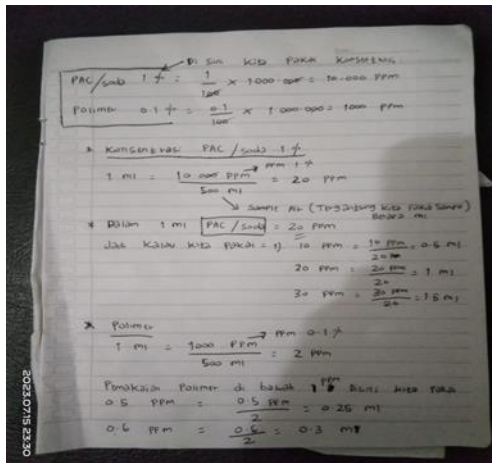 Di sini kita pakai konsentrasi
PAC/soda 1 % = 1/100 × 1000.000 = 10.000 ppm
Polimer 0.1 % = 0.1/100 × 1.000.000 = 1000 ppm
* Konsentrasi PAC/soda 1 %
ppm 1 %
1 ml = 10 000 ppm / 500 ml = 20 ppm
Sampel Air (Tergantung kita pakai sampel
Berapa ml
* Dalam 1 ml PAC/soda = 20 ppm
Jadi kalau kita pakai = 1) 10 ppm = 10 ppm / 20 ppm = 0.5 ml
20 ppm = 20 ppm / 20 = 1 ml
30 ppm = 30 ppm / 20 = 1.5 ml
* Polimer
ppm 0.1 %
1 ml = 1000 ppm / 500 ml = 2 ppm
Pemakaian Polimer di bawah 1 ppm disini kita pakai
0.5 ppm = 0.5 ppm / 2 = 0.25 ml
0.6 ppm = 0.6 / 2 = 0.3 ml
2023.07.15 23:30